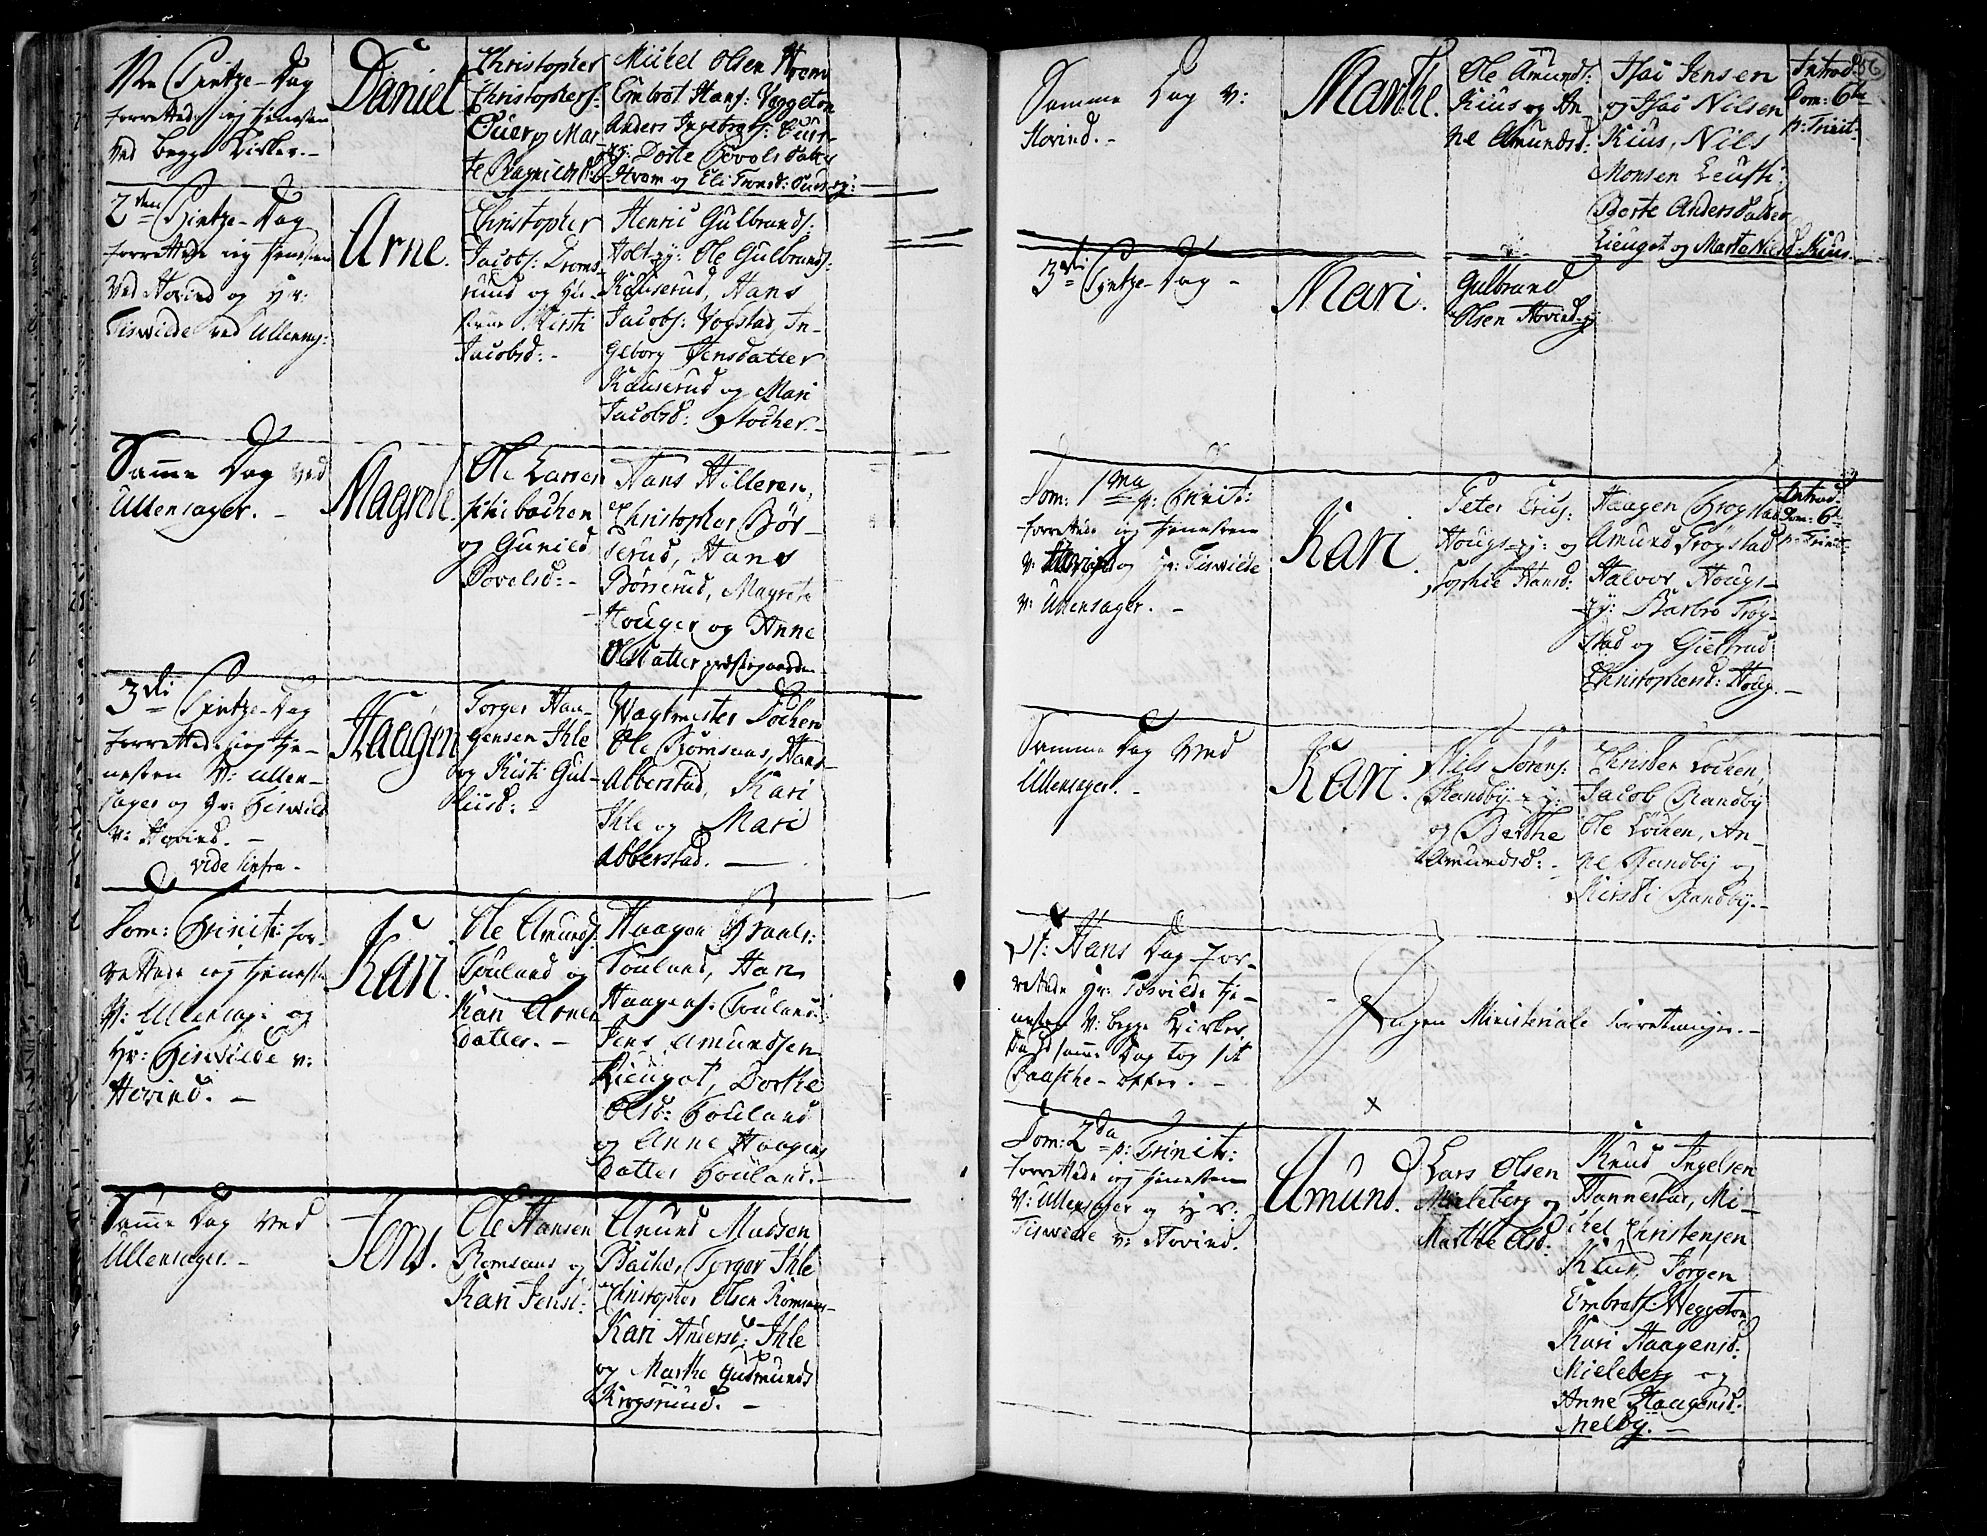 1ste Pintze-Dag
forrettede jeg tjenesten
ved begge Kirker.-
Daniel
Christopher
Christophers:
og Mar-
te
Mickel Olsen Hrom
Embret Hans: Veggeton
Anders Ingebrets:
Dorte Povelsdatter
Hrom og Eli Trends:
2den Pintze-Dag
forrettede jeg tjenesten
ved Hovind og Hr:
Tisvilde ved Ullensag:
Arne.
Christopher
Jacobs: Droms-
rund og Hu-
strue Kirsti
Jacobsd:-
Henric Gulbrands:
Holt-ej: Ole Gulbrands:
Kauserud, Hans
Jacobs: Vogstad, In-
geborg Jensdatter
Kauserud og Mari
Jacobsd: Stocher.-
Samme Dag ved
Ullensager. -
Magrete.
Ole Larsen
schibachen
og Gunild
Povelsd:-
Hans Hilleren,
Christopher Bör-
serud, Hans
Börserud, Magrete
Houger og Anne
Olsdatter præstegaarden
3die Pintze-Dag
forrettede jeg tje-
nesten v: Ullen-
sager og Hr: Tisvilde
v: Hovind. -
vide infra -
Haagen
Torger Haa-
gensen Ihle
og Kisti Gul-
Wagtmester Lochen
Ole Romsaas, Hans
Abberstad, Kari
Ihle og Mari
Abberstad. -
Dom: Trinit: for-
rettede jeg tjenesten
v: Ullensag: og
Hr: Tisvilde v:
Hovind. -
Kari.
Ole Amunds:
Fouland og
Kari Arne
datter. -
Haagen
Fouland, Hans
Haagens: Fouland
Jens Amundsen
Lieugot, Dorthe
Olsd: Fouland
og Anne Haagens
datter Fouland. -
Samme Dag ved
Ullensager. -
Jens.
Ole Hansen
Romsaas og
Kari Jensd:
Amund Madsen
Bache, Torger Ihle
Christopher Olsen Romsaas-
Kari Andersd: Ihle
og Marthe Gudmunds
Krogsrud. -
56
Samme Dag v:
Hovind. -
Marthe.
Ole Amunds:
Kius og An-
ne Amundsd:
Isac Jensen
og Isac Nilsen
Kius, Nils
Monsen
Berte Andersdatter
Lieugot og Marta Nilsd: Kius.
Introd:
Dom: 6ta
p: Trinit:
3die Pintze-Dag -
Mari.
Gulbrand
Olsen Hovind-ej
Dom: 1ma p: Trinit:
forrettede jeg tjenesten
v: Hovind og Hr: Tisvilde
v: Ullensager. -
Kari.
Peter
Hougs-ej: og
Sophie Hansd:
Haagen Frogstad
Amund Frogstad
Halvor Hougs-
ej: Barbro Frog-
stad og Gieltrud
Christophersd: Houg. -
Introd:
Dom: 6ta
p: Trinit:
Samme Dag ved
Ullensager. -
Kari.
Nils Sörens:
Randby-ej:
og Berthe
Amundsd: -
Christen Lochen,
Jacob Randby
Ole Lochen, An-
ne Randby og
Kirsti Randby. -
St: Hans Dag for-
rettede Hr: Tisvilde tje-
nesten v: begge Kirker,
samme Dag tog sit
Paasche-offer. -
Ingen Ministeriale forretninger. -
Dom: 2da p: Trinit:
forrettede jeg tjenesten
v: Ullensager og Hr:
Tisvilde v: Hovind.
Amund.
Lars Olsen
Mieleberg og
Marthe Olsd:
Knud Ingelsen
Hannestad, Mi-
chel Christensen
Kius, Jörgen
Embrets: Heggeton
Kari Haagensd:
Mieleberg og
Anne Haagensd:
Melby. -